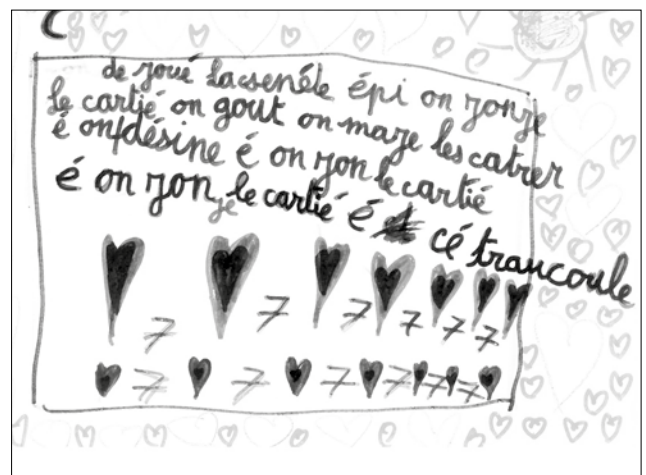 de joué lacsenéle épi on ronje
le cartié on gout on maje les catrer
é on désine é on ron le cartié
é on ronje le cartié é cé traucoule
7 7 7 7 7 7
7 7 7 7 7